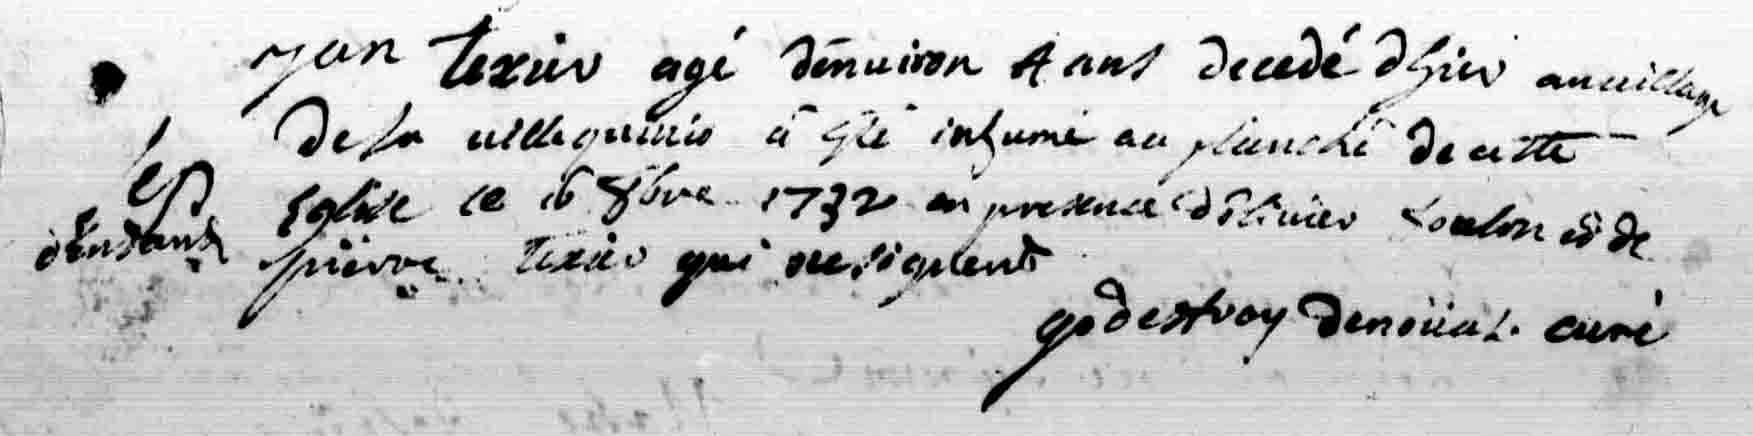 Jan texier agé denuiron 4 ans decedé dhier au uillage
De la uillequinio à esté inhumé au planché de cette
les
Eglise ce 16 8bre 1732 en presence dolivier et de
d'Enfants
pierre texier qui ne signent
godestroy denoüal. curé